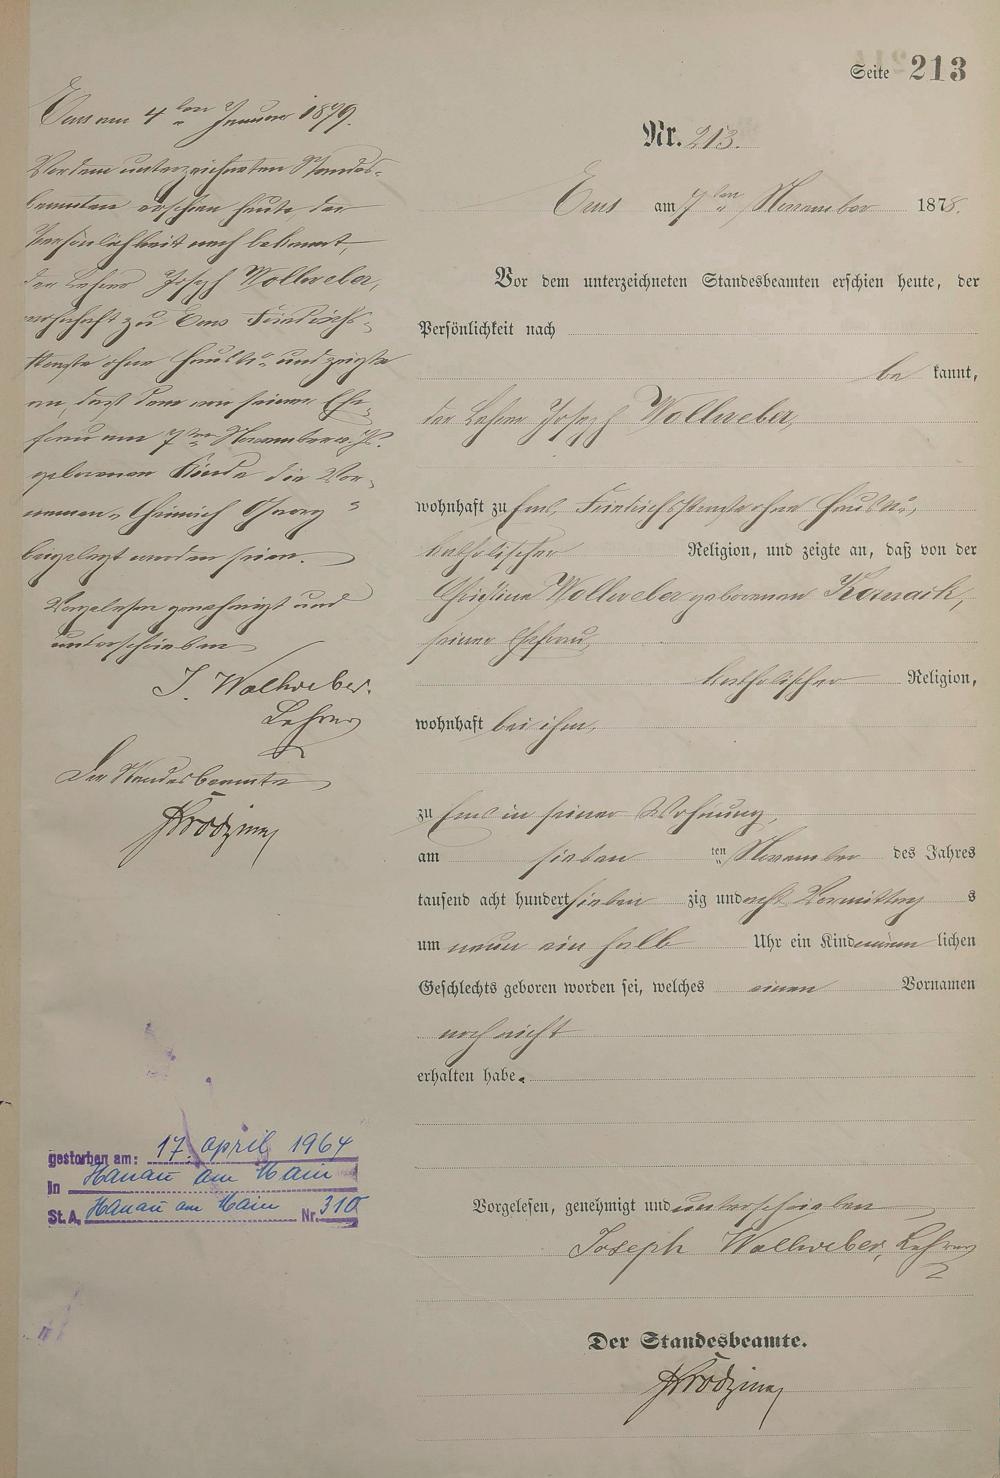 Seite 213
Nr. 213.
Ems am 7ten November 1878.
Vor dem unterzeichneten Standesbeamten erschien heute, der
Persönlichkeit nach
be kannt,
der Lehrer Joseph Wollweber,
wohnhaft zu Ems, Friedrichsstraße ohne Haus Nr,
katholischer Religion, und zeigte an, daß von der
Christina Wollweber geborenen
seiner Ehefrau,
katholischer Religion,
wohnhaft bei ihm,
zu Ems in seiner Wohnung,
am sieben ten November des Jahres
tausend acht hundert sieben zig und acht Vormittag s
um neun ein halb Uhr ein Kind männ lichen
Geschlechts geboren worden sei, welches einen Vornamen
noch nicht
erhalten habe.
Vorgelesen, genehmigt und unterschrieben
Joseph Wollweber, Lehrer
Der Standesbeamte.
Ems am 4ten Januar 1879.
Vor dem unterzeichneten Standes-
beamten erschien heute, der
Persönlichkeit nach bekannt,
der Lehrer Joseph Wollweber,
wohnhaft zu Ems Friedrichs-
straße ohne Haus Nr. und zeigte
an, daß dem von seiner Ehe-
frau am 7ten November v. Js.
geborenen Kinde die Vor-
namen "Heinrich Georg"
beigelegt worden seien.
Vorgelesen genehmigt und
unterschrieben
J. Wollweber.
Lehrer
Der Standesbeamte
gestorben am: 17. April 1964
in Hanau am Main
St.A. Hanau am Main Nr. 310